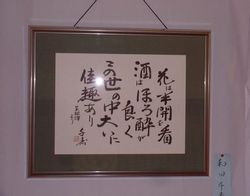 花は半開を看
酒はほろ酔が
良く
この世の中大いに
佳趣あり